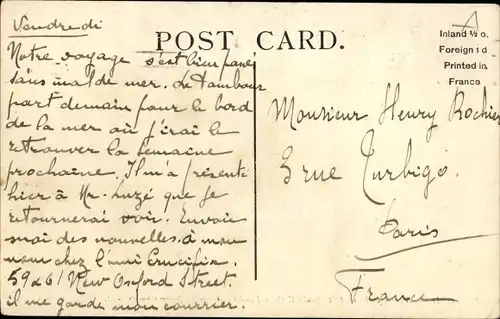 Vendredi
POST CARD.
Inland ½ d.
Foreign 1 d
Printed in
France
Notre voyage s'est bien passé
sans mal de mer. Le Tambour
part demain pour le bord
de la mer où j'irai le
retrouver la semaine
prochaine. Il m'a présenté
hier à Mr. que je
retournerai voir. Envoie
moi des nouvelles à mon
nom chez l'ami Crucifix
59 & 61 New Oxford Street.
il me garde mon courrier.
Monsieur Henry Rochier
3 rue Turbigo.
Paris
France